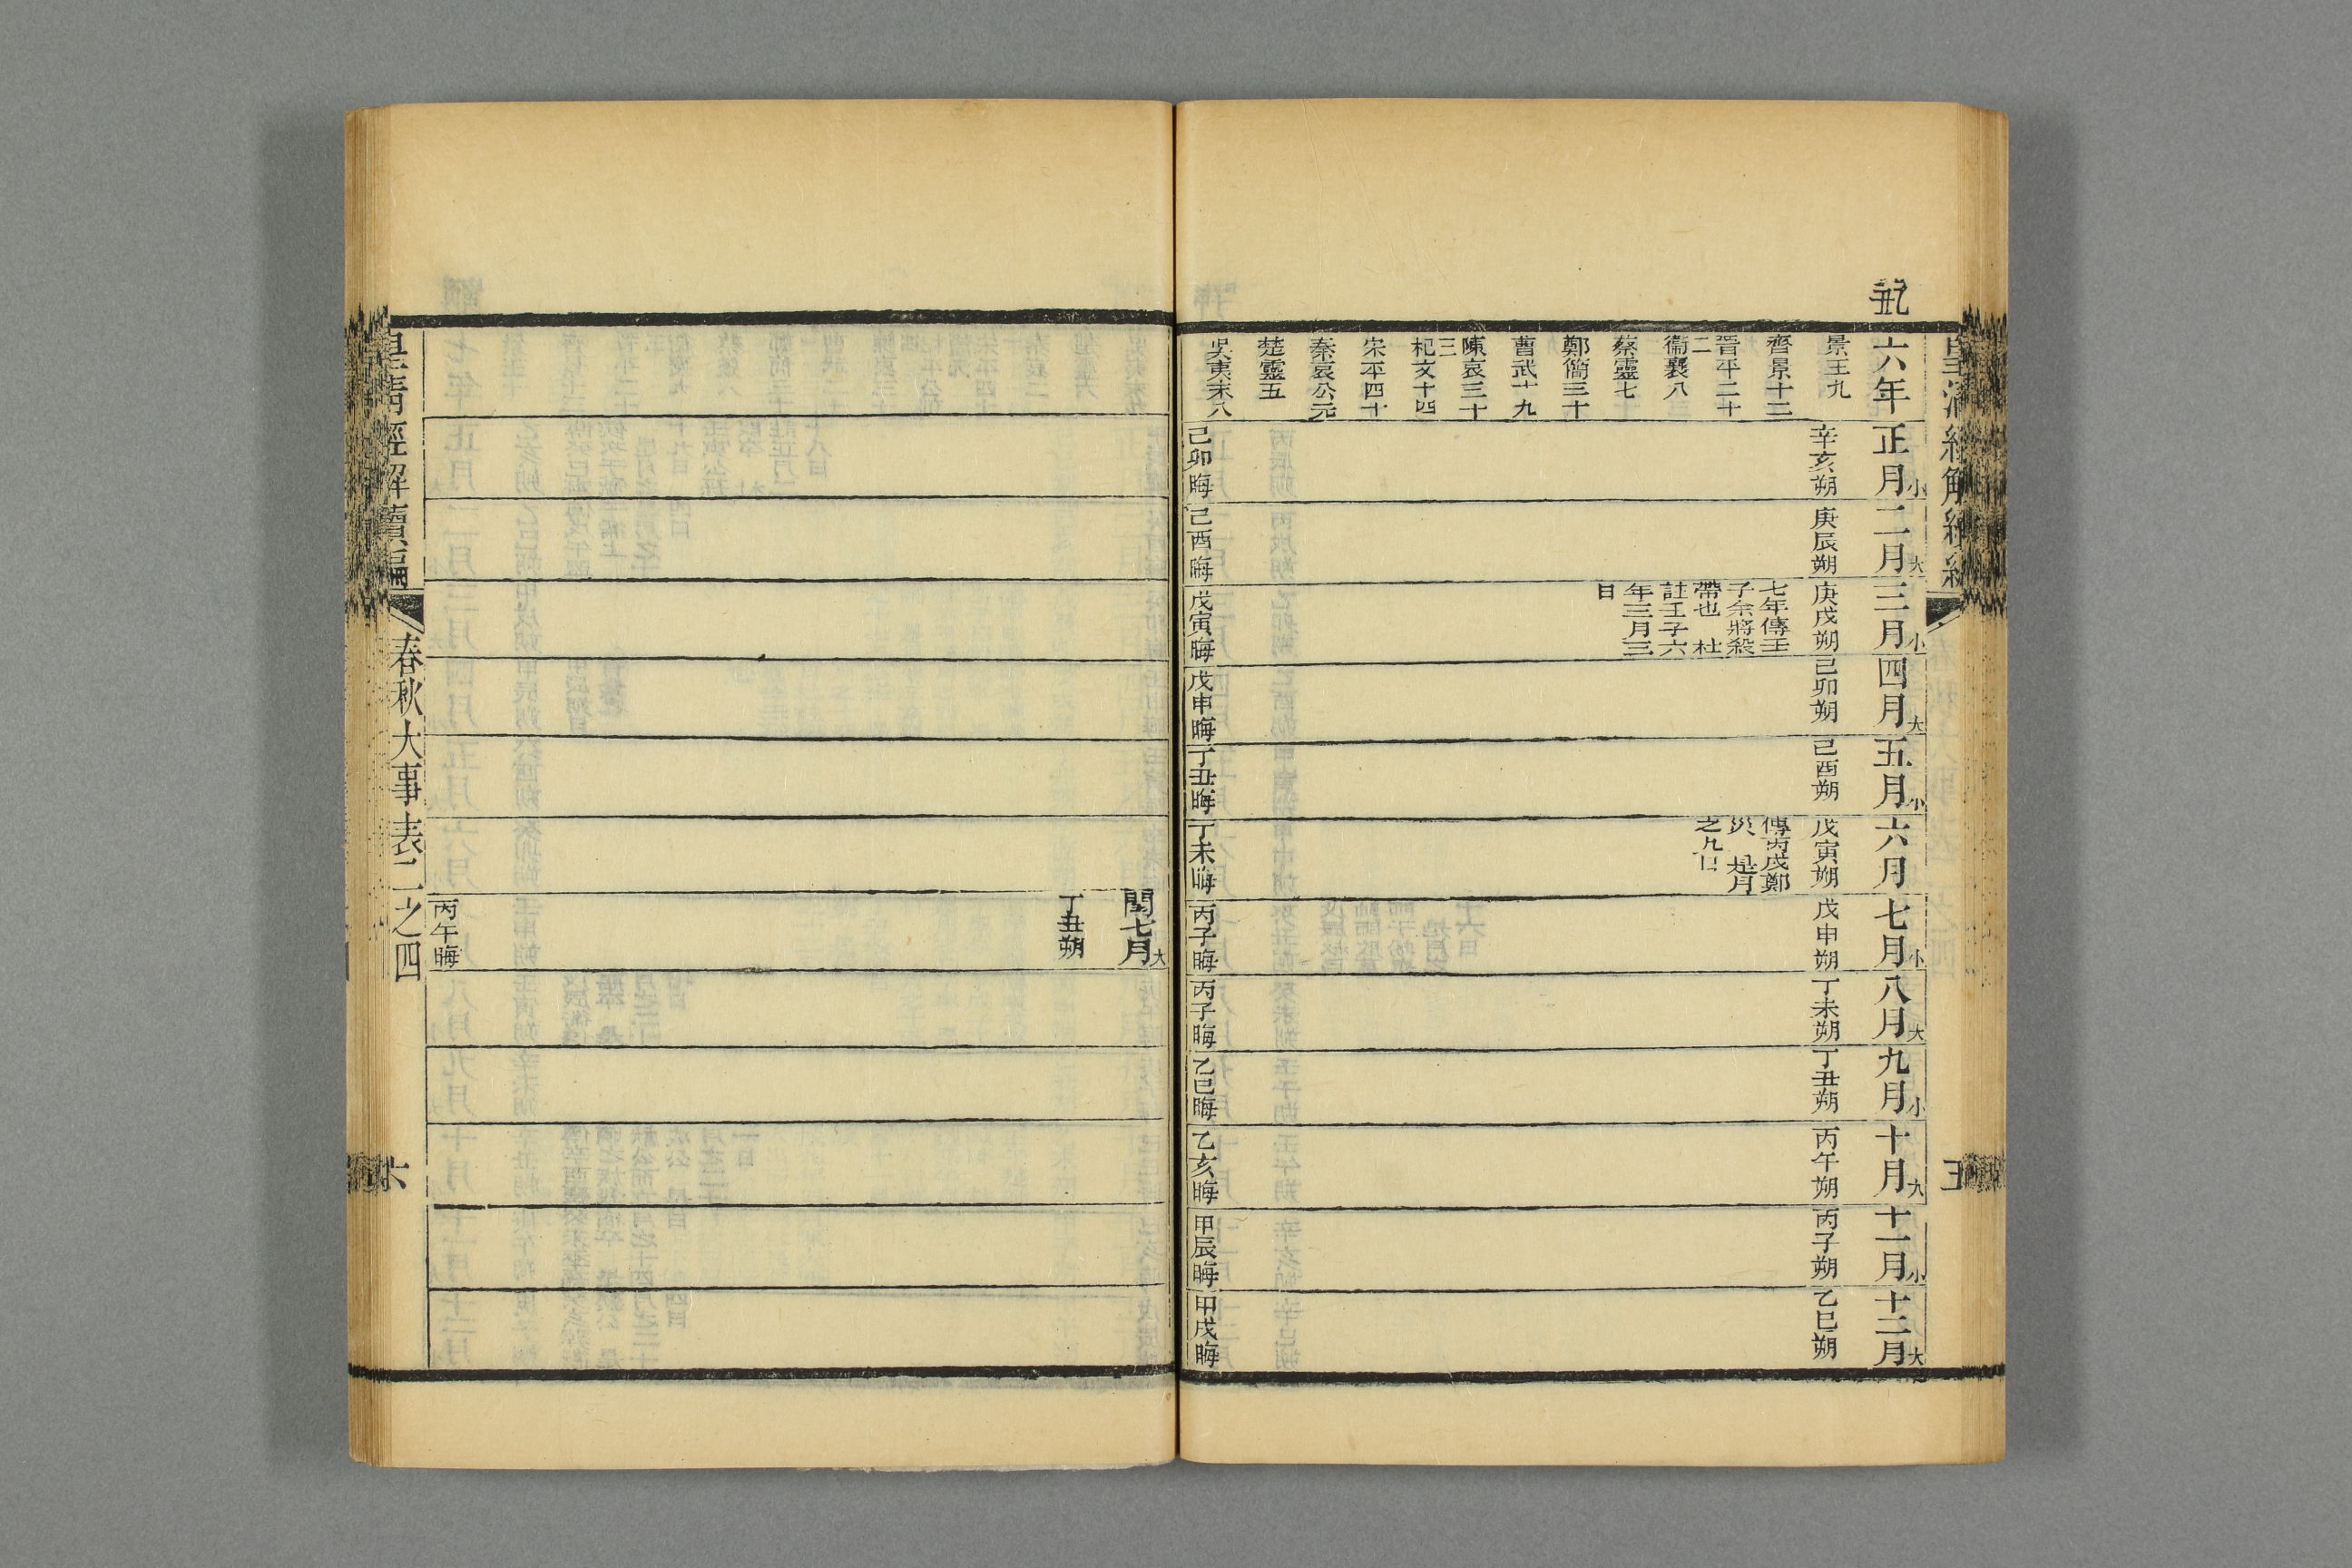 六年
景王九
齊景十二
晉平二十
二
衞襄八
蔡靈七
鄭簡三十
曹武十九
陳哀三十
三
杞文十四
宋平四十
秦哀公元
楚靈五
吳夷末八
正月小
辛亥朔
己卯晦
二月大
庚辰朔
己酉晦
三月小
庚戌朔
七年傳壬
子余將殺
帶也 杜
註壬子六
年三月三
日
戊寅晦
四月大
己卯朔
戊申晦
五月小
己酉朔
丁丑晦
六月
戊寅朔
傳丙戌鄭
災 是月
之九日
丁未晦
七月小
戊申朔
丙子晦
八月大
丁未朔
丙子晦
九月小
丁丑朔
乙巳晦
十月大
丙午朔
乙亥晦
十一月小
丙子朔
甲辰晦
十二月大
乙巳朔
甲戌晦
閏七月大
丁丑朔
丙午晦
皇清經解續編
春秋大事表二之四
六